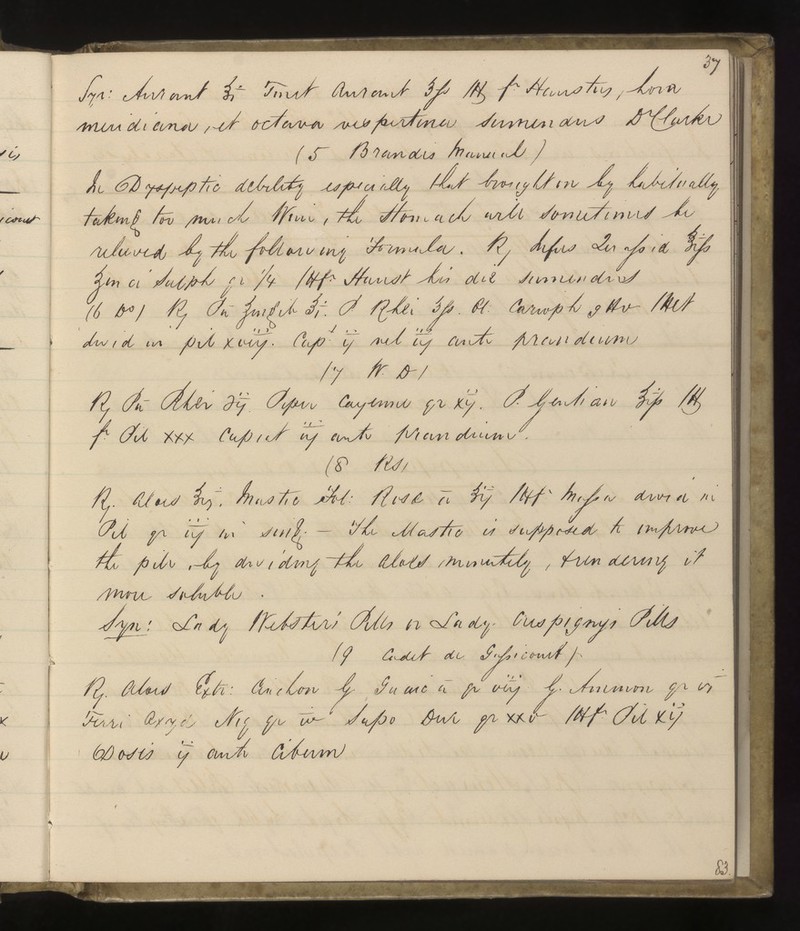 37
Syr: Aurant ʒi Tinct Aurant ʒſs M ft Haustus, hora
meridiana, et octava vespertina sumendus Dr Clarke
(5 Brandes Manual)
In Dyspeptic debility especially that brought on by habitually
taking too much Wine, the Stomach will sometimes be
relieved by the following Formula. ℞ Infus Quassiæ ℥iſs
Zinci Sulph gr 1/4 Mft Haust bis die sumendus
(6 Do) ℞ Pu Zingib ʒi. P Rhei ʒſs. Ol: Caryoph Mft
divid in pil xviij. Capt ij vel iij ante prandium
(7 W. D)
℞ Pu Rhei ℈ij Piper Cayenne gr xij. P. Gentian ʒiſs M
ft Pil xxx Capiat iij ante prandium.
(8 Rs)
℞. Aloes Mastic Fol: Rosæ a ʒij Mft Massa divid in
Pil gr iij in sing. — The Mastic is supposed to improve
the pill, by dividing the aloes minutely, & rendering it
more soluble.
Syn: Lady Webster's Pills or Lady Cuspigny's Pills
(9 Cadet de Gassicourt)
℞. Aloes Extr: Cinchon G Guaic a gr viij G. Ammon gr vi
Ferri Oxyd Nig gr iv Sapo Dur gr xxv Mft Pil xij
Dosis ij ante Cibum
83